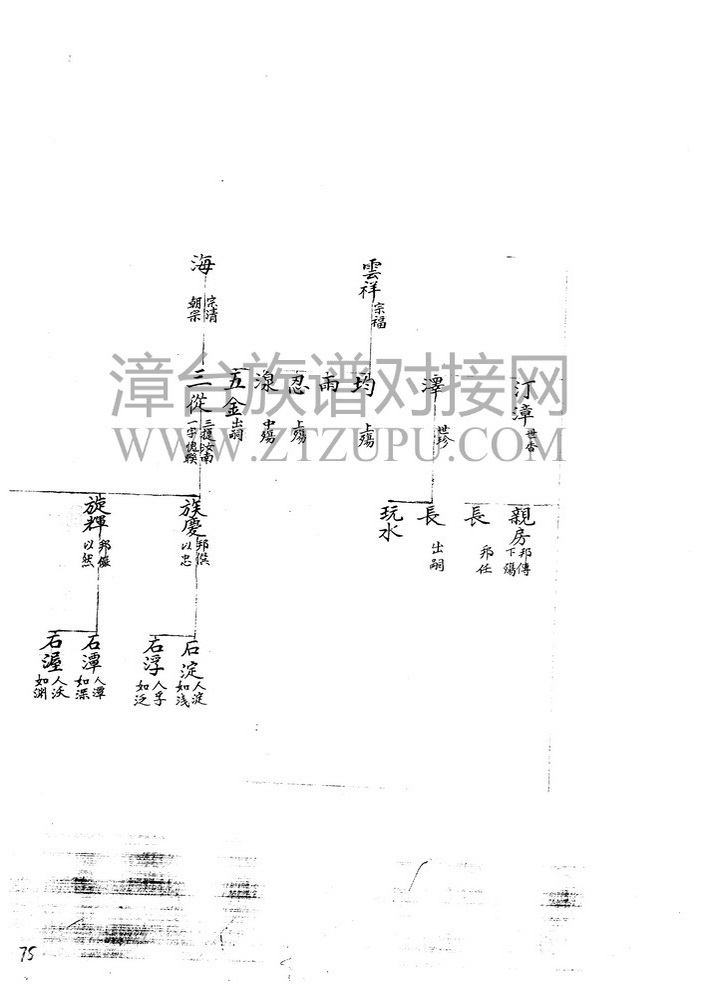 雲祥
宗福
海
宗清
朝宗
汀漳
世杏
澤
世珍
均
上殤
雨
忍
上殤
湶
中殤
五金
出嗣
三從
三提汝南
親房
邦傳
下殤
長
邦任
長
出嗣
玩水
族慶
邦傑
以忠
旋輝
以然
石淀
人淀
如浅
石浮
人孚
如泛
石潭
人潭
如深
石渥
人沃
如渊
漳台族谱对接网
WWW.ZTZUPU.COM
75